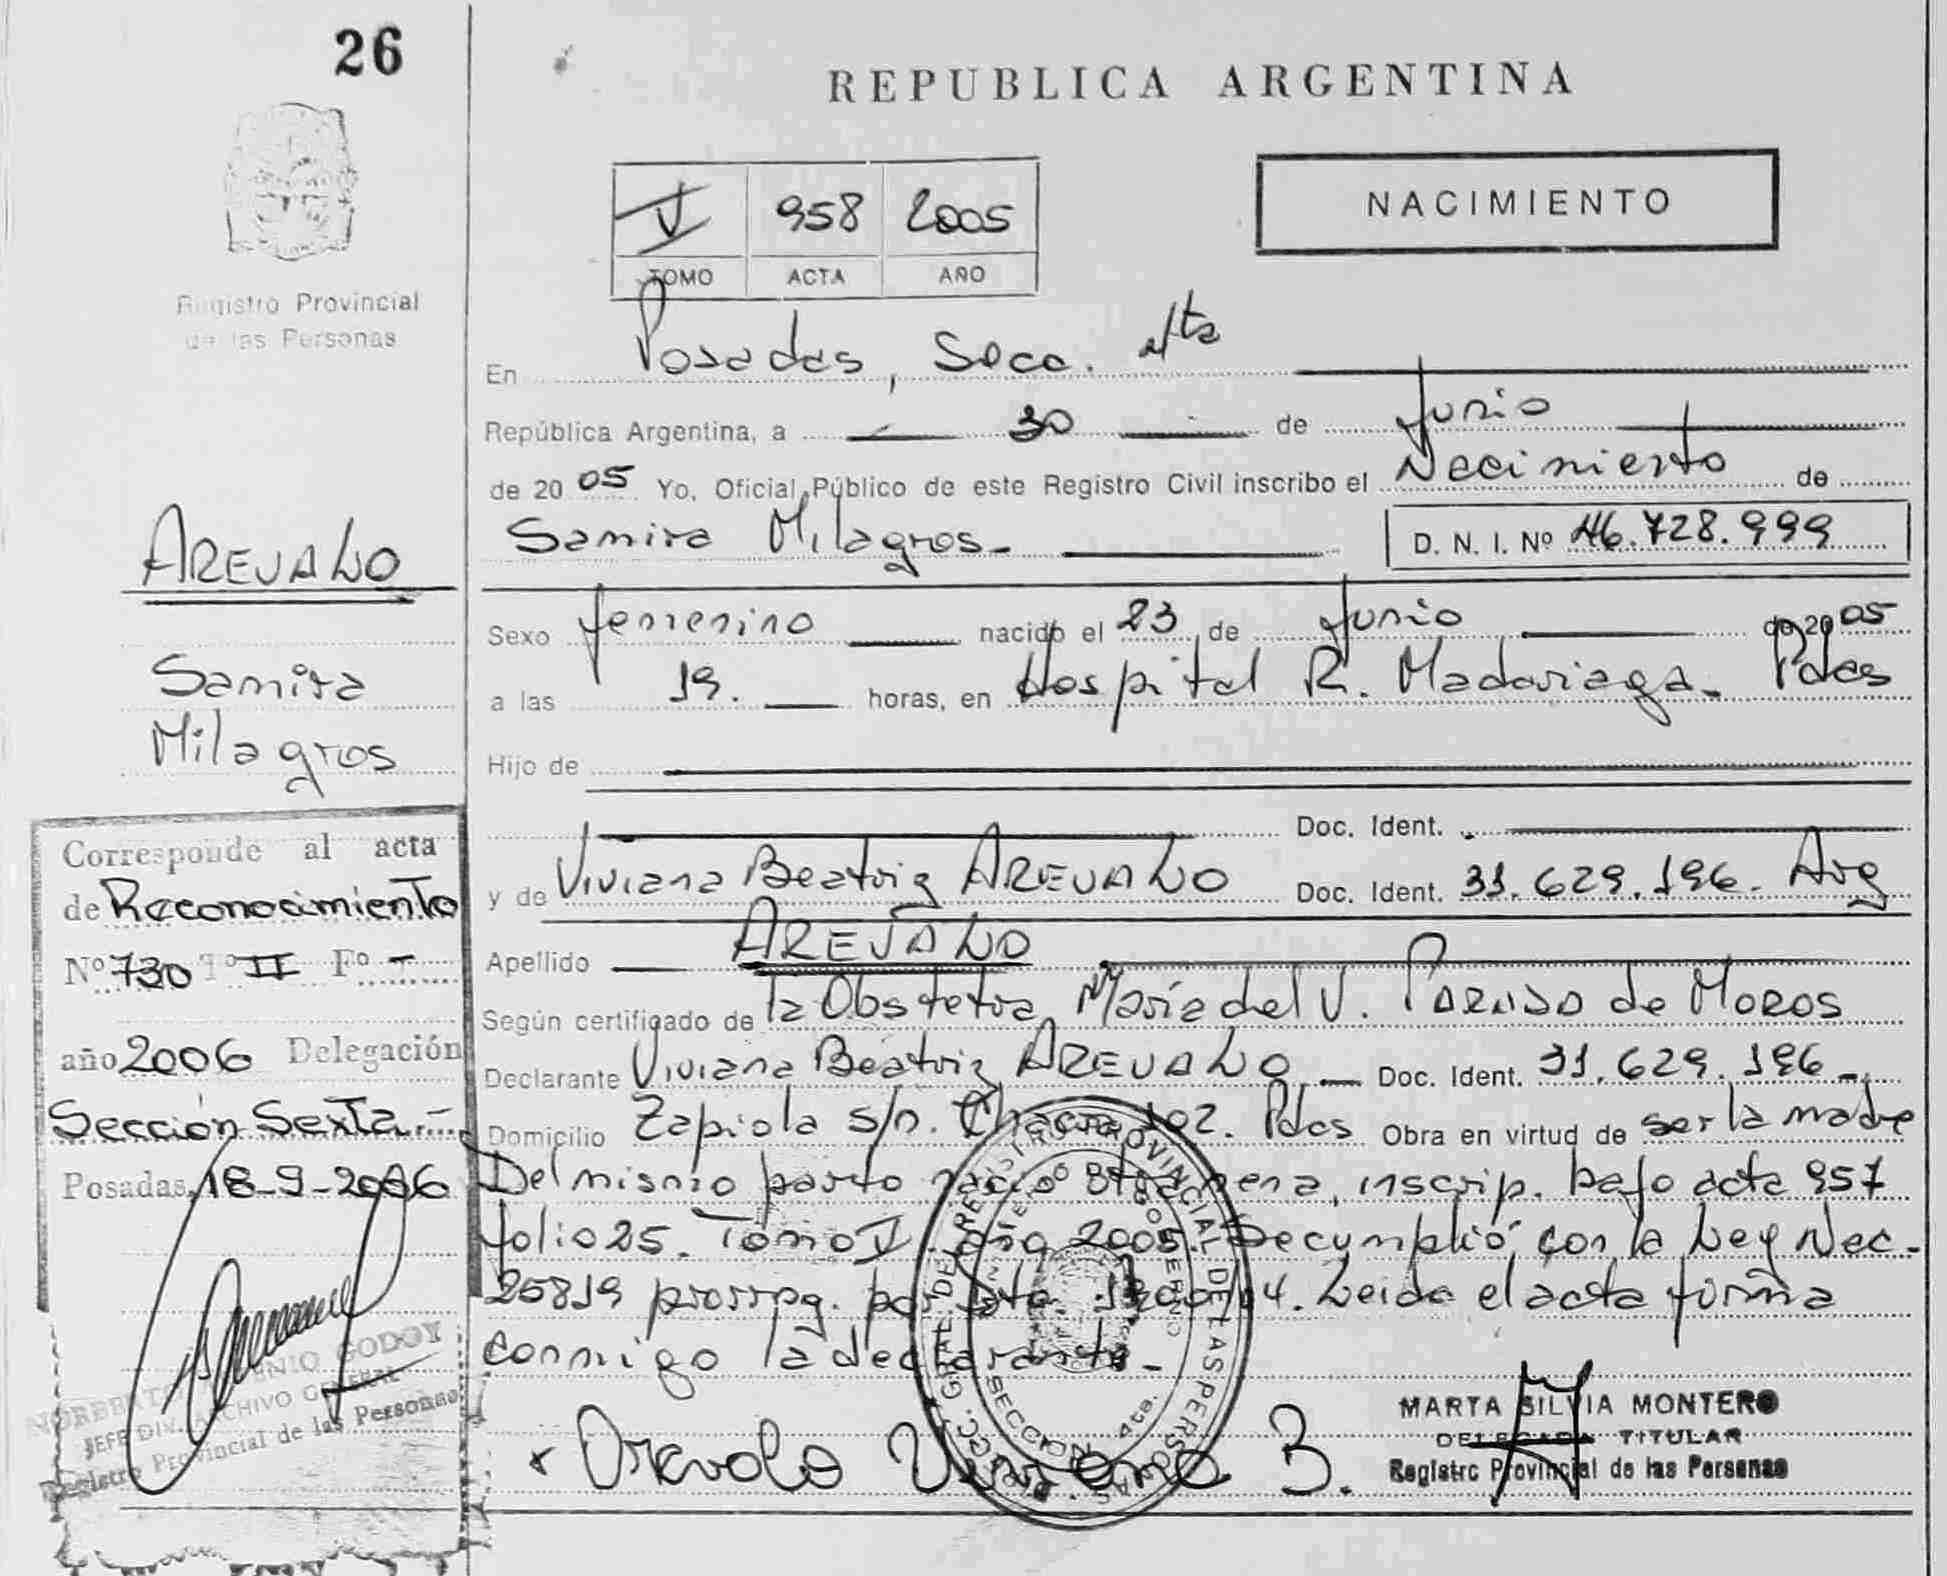 26
REPUBLICA ARGENTINA
NACIMIENTO
V 958 2005
TOMO ACTA AÑO
Registro Provincial
de las Personas
En Posadas, Secc. 4ta
República Argentina, a 30 de Junio
de 2005 Yo, Oficial Público de este Registro Civil inscribo el Nacimiento de
Samira Milagros.- D. N. I. Nº 46.728.999
Sexo femenino nacido el 23 de Junio de 2005
a las 19. horas, en Hospital R. Madariaga.- Pdas
Hijo de
Doc. Ident.
y de Viviana Beatriz AREVALO Doc. Ident. 31.629.196. Arg
Apellido AREVALO
Según certificado de la Obstetra María del V. de MOROS
Declarante Viviana Beatriz AREVALO.- Doc. Ident. 31.629.196.-
Domicilio Zapiola s/n. Chacra 102. Pdas Obra en virtud de ser la madre
Del mismo parto nació inscrip. bajo acta 957
folio 25. Tomo V. año 2005. Se cumplió con la Ley Nac.
25819 prorrog. por Dto. Leida el acta firma
conmigo la declarante.-
x Arevalo Viviana B.
MARTA SILVIA MONTERO
DELEGADA TITULAR
Registro Provincial de las Personas
AREVALO
Samira
Milagros
Corresponde al acta
de Reconocimiento
Nº 730 Tº II Fº -
año 2006 Delegación
Sección Sexta.-
Posadas, 18-9-2006
NORBERTO ANTONIO GODOY
JEFE DIV. ARCHIVO GENERAL
Registro Provincial de las Personas
DIRECC. GRAL. DEL REGISTRO PROVINCIAL DE LAS PERSONAS
SECCION 4ta.